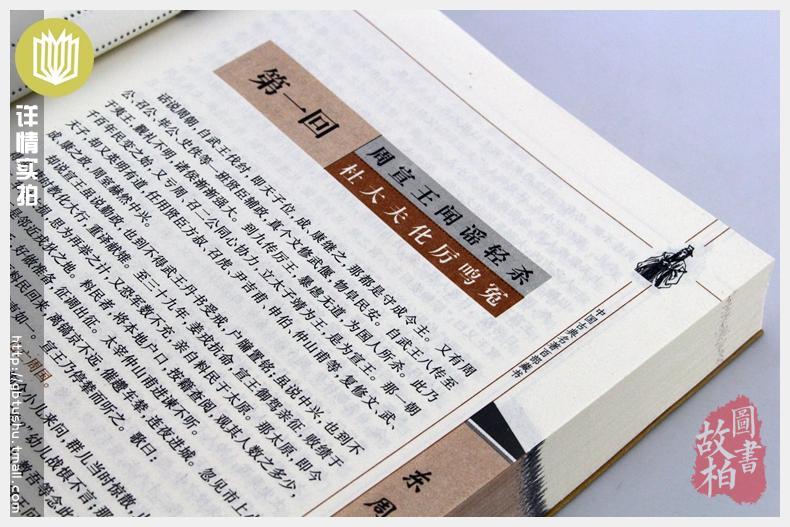 详情实拍
http://gbtushu.tmall.com
第一回
周宣王闻谣轻杀
杜大夫化厉鸣冤
话说周朝,自武王伐纣,即天子位,成、康继之,那都是守成令主。又有周
公、召公、毕公、史佚等一班贤臣辅政,真个文修武偃,物阜民安。自武王八传至
于夷王,觐礼不明,诸侯渐渐强大。到九传厉王,暴虐无道,为国人所杀。此乃
千百年民变之始,又亏周、召二公同心协力,立太子靖为王,是为宣王。那一朝
天子,却又英明有道,任用贤臣方叔、召虎、尹吉甫、申伯、仲山甫等,复修文、武、
成、康之政,周室赫然中兴。
却说宣王虽说勤政,也到不得武王丹书受戒,户牖置铭,虽说中兴,也到不
教化大行,重译献雉。至三十九年,姜戎抗命,宣王御驾亲征,败绩于
思为再举之计,又恐军数不充,亲自料民于太原。那太原,即今
是邻近戎狄之地。料民者,将本地户口,按籍查阅,观其人数之多少,
好做准备,征调出征。太宰仲山甫进谏不听。
料民回来,离镐京不远,催趱车辇,连夜进城。忽见市上
如一。宣王乃停辇而听之。歌曰:
周国。
小儿来问,群儿当时惊散,
幼儿战惧不言;那
中国古典名著百部藏书
东
周
圖書
故柏